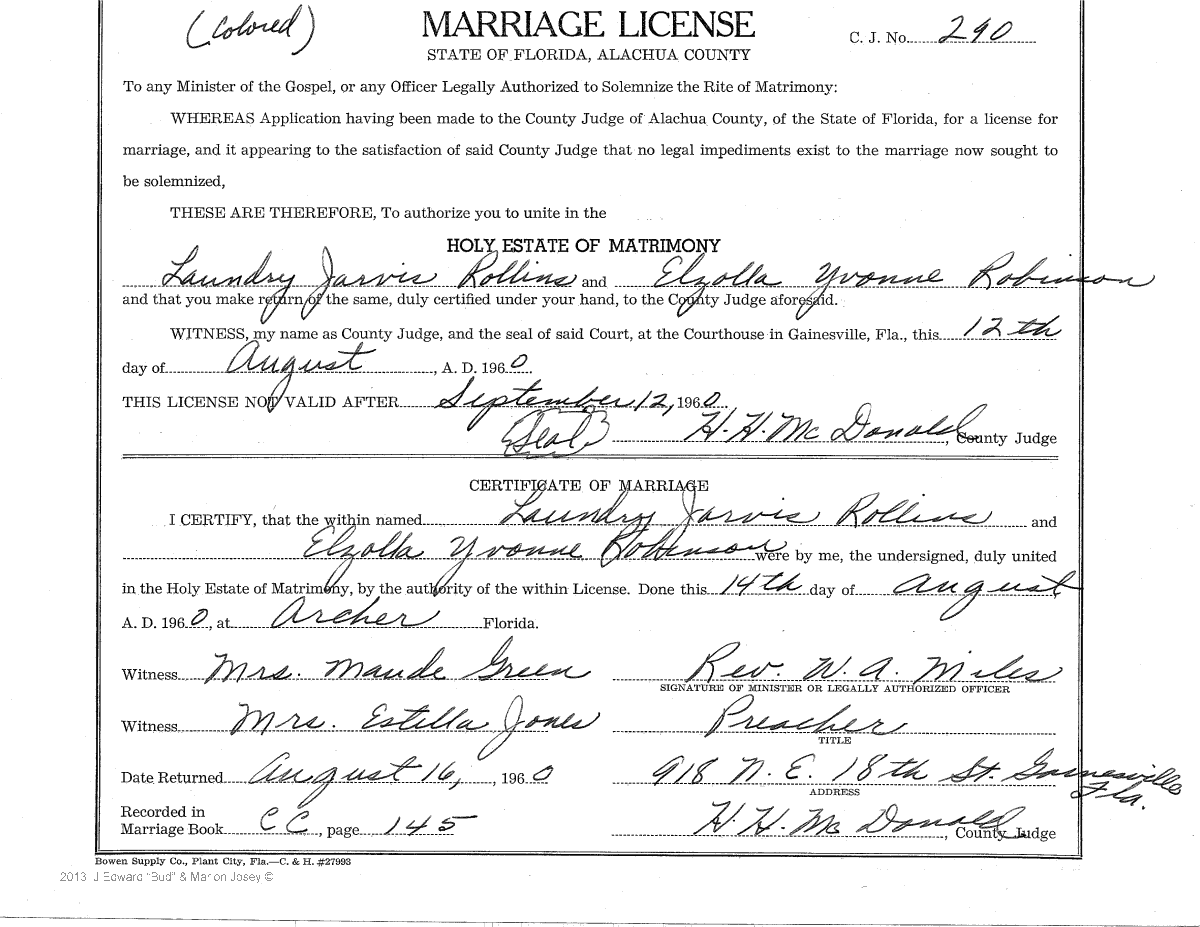 (Colored)
MARRIAGE LICENSE
C. J. No. 290
STATE OF FLORIDA, ALACHUA COUNTY
To any Minister of the Gospel, or any Officer Legally Authorized to Solemnize the Rite of Matrimony:
WHEREAS Application having been made to the County Judge of Alachua County, of the State of Florida, for a license for
marriage, and it appearing to the satisfaction of said County Judge that no legal impediments exist to the marriage now sought to
be solemnized,
THESE ARE THEREFORE, To authorize you to unite in the
HOLY ESTATE OF MATRIMONY
Laundry Jarvis Rollins and Elzolla Yvonne Robinson
and that you make return of the same, duly certified under your hand, to the County Judge aforesaid.
WITNESS, my name as County Judge, and the seal of said Court, at the Courthouse in Gainesville, Fla., this 12th
day of August, A. D. 1960.
THIS LICENSE NOT VALID AFTER September 12, 1960.
(Seal) H. H. McDonald, County Judge
CERTIFICATE OF MARRIAGE
I CERTIFY, that the within named Laundry Jarvis Rollins and
Elzolla Yvonne Robinson were by me, the undersigned, duly united
in the Holy Estate of Matrimony, by the authority of the within License. Done this 14th day of August
A. D. 1960, at Archer Florida.
Witness Mrs. Maude Green Rev. W. A. Miles
SIGNATURE OF MINISTER OR LEGALLY AUTHORIZED OFFICER
Witness Mrs. Estella Jones Preacher
TITLE
Date Returned August 16, 1960 918 N. E. 18th St. Gainesville Fla.
ADDRESS
Recorded in
Marriage Book CC, page 145 H. H. McDonald, County Judge
Bowen Supply Co., Plant City, Fla.—C. & H. #27993
2013 J Edward "Bud" & Marion Josey ©